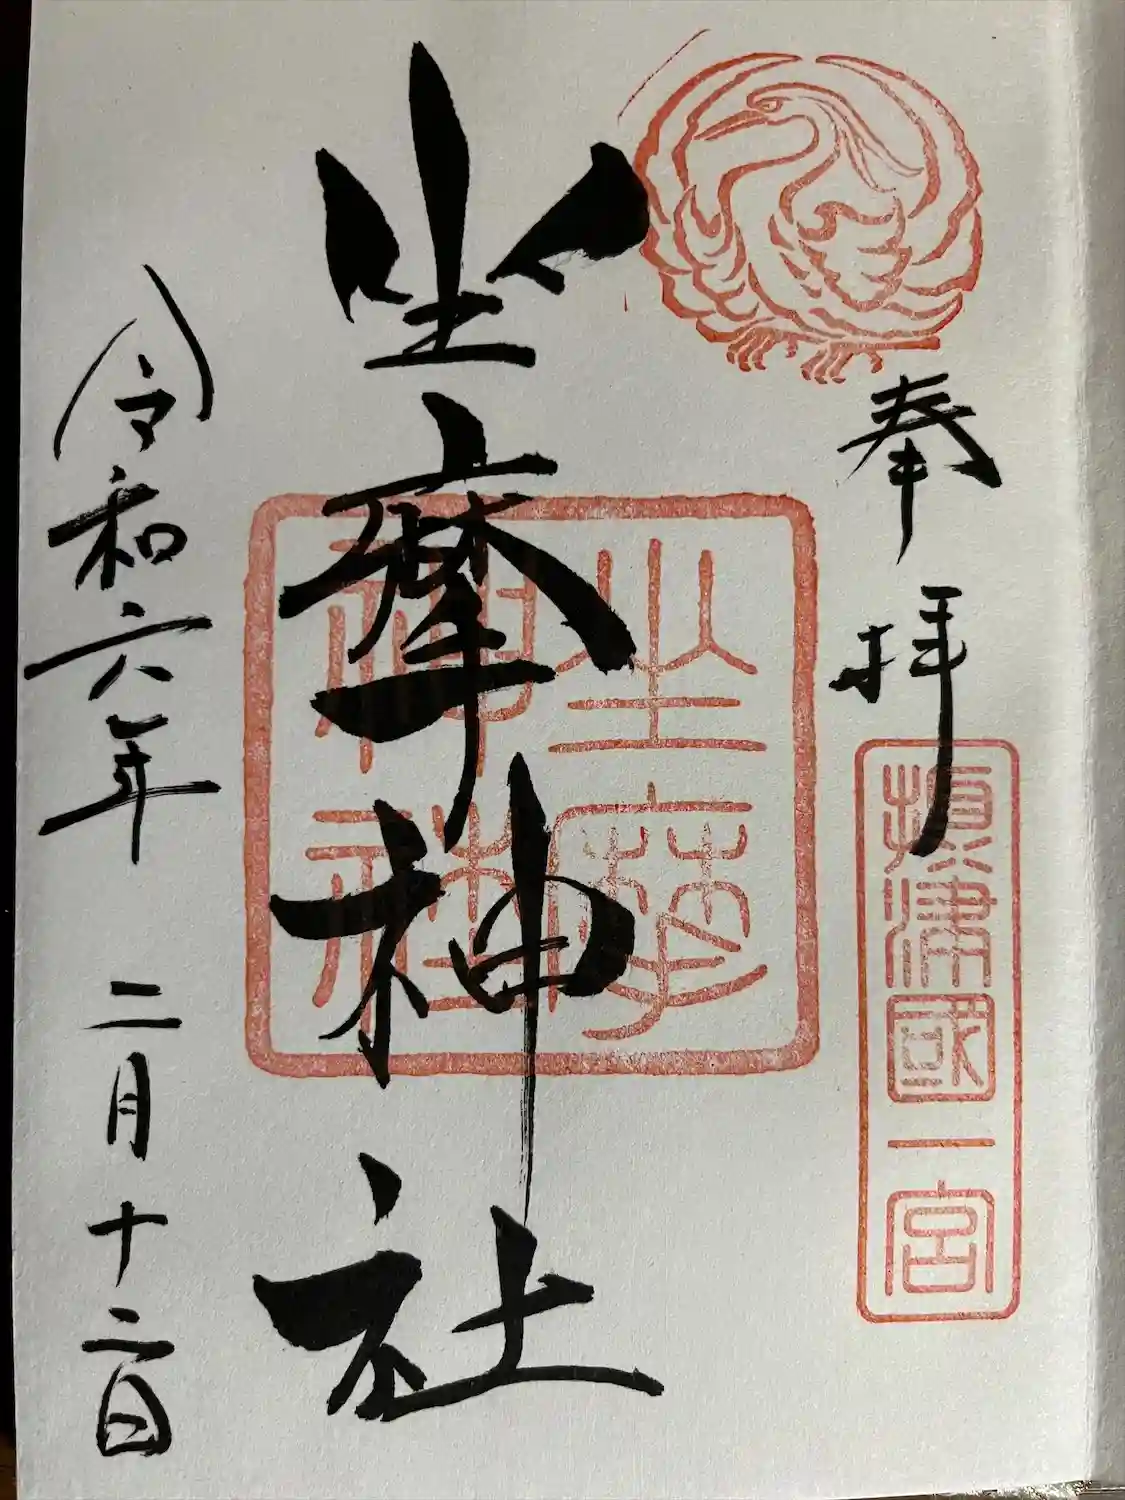 奉拝
攝津國一宮
坐摩神社
坐摩
神社
令和六年 二月十二日